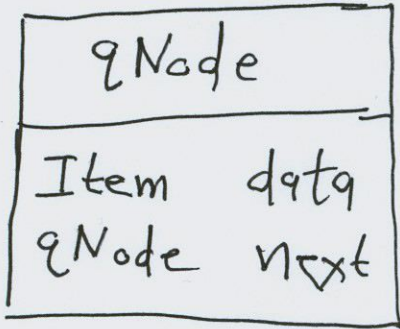 qNode
Item data
qNode next